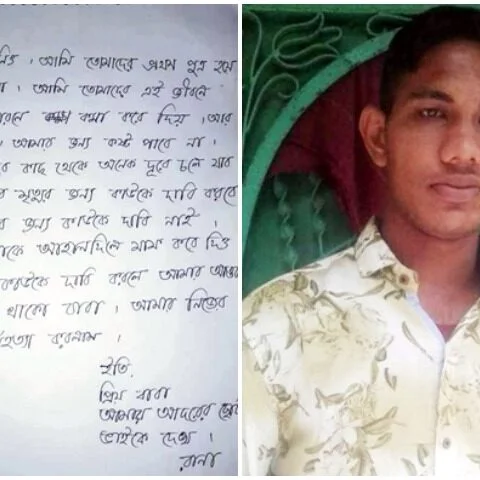 আমি তোমাদের প্রথম পুত্র হলে
। আমি তোমাদের এই জীবনে
ক্ষমা করে দিয়া । আর
। আমার জন্য কষ্ট পাবে না ।
কাছ থেকে অনেক দূরে চলে যাব
মৃত্যুর জন্য কাউকে দায়ি করবে
জন্য কাউকে দায়ি নাই ।
মাফ করে দিও
দায়ি করলে আমার আত্তা
থাকো বাবা । আমার নিজের
করলাম ।
ইতি,
প্রিয় বাবা
আমার আদরের ছোট
ভাইকে দেখ ।
রানা